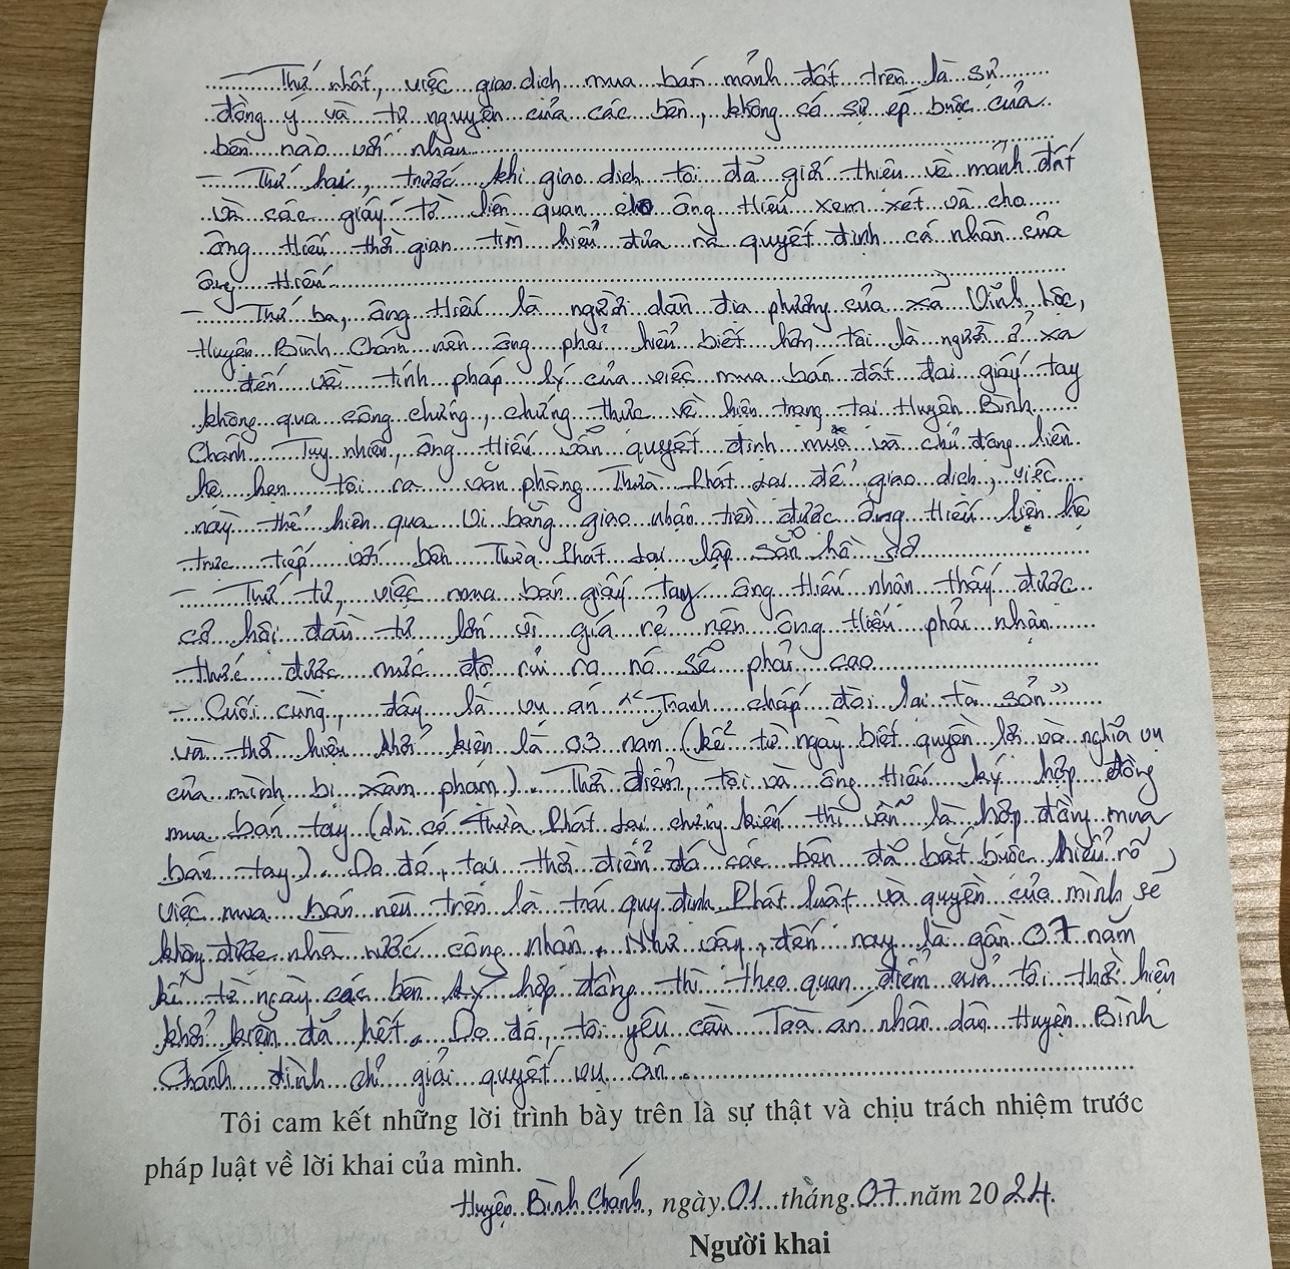 Thứ nhất, việc giao dịch mua bán mảnh đất trên là sự
đồng ý và tự nguyện của các bên, không có sự ép buộc của
bên nào với nhau
- Thứ hai, trước khi giao dịch tôi đã giới thiệu về mảnh đất
và các giấy tờ liên quan cho ông Hiếu xem xét và cho
ông Hiếu thời gian tìm hiểu đưa ra quyết định cá nhân của
ông Hiếu
- Thứ ba, ông Hiếu là người dân địa phương của xã Vĩnh Lộc,
Huyện Bình Chánh nên ông phải hiểu biết hơn tôi là người ở xa
đến về tính pháp lý của việc mua bán đất đai giấy tay
không qua công chứng, chứng thực về hiện trạng tại Huyện Bình
Chánh. Tuy nhiên, ông Hiếu vẫn quyết định mua và chủ động liên
hệ hẹn tôi ra văn phòng Thừa Phát Lại để giao dịch, việc
này thể hiện qua vi bằng giao nhận tiền được ông Hiếu liên hệ
trực tiếp với bên Thừa Phát Lại lập sẵn hồ sơ
- Thứ tư, việc mua bán giấy tay ông Hiếu nhận thấy được
cơ hội đầu tư lớn vì giá rẻ nên ông Hiếu phải nhận
thức được mức độ rủi ro nó sẽ phải cao
- Cuối cùng, đây là vụ án "Tranh chấp đòi lại tài sản"
và thời hiệu khởi kiện là 03 năm (kể từ ngày biết quyền lợi và nghĩa vụ
của mình bị xâm phạm). Thời điểm, tôi và ông Hiếu ký hợp đồng
mua bán tay (dù có Thừa Phát Lại chứng kiến thì vẫn là hợp đồng mua
bán tay). Do đó, tại thời điểm đó các bên đã bắt buộc hiểu rõ
việc mua bán nêu trên là trái quy định Pháp luật và quyền của mình sẽ
không được nhà nước công nhận. Như vậy, đến nay là gần 07 năm
kể từ ngày các bên ký hợp đồng thì theo quan điểm của tôi thời hiệu
khởi kiện đã hết. Do đó, tôi yêu cầu Toà án nhân dân Huyện Bình
Chánh đình chỉ giải quyết vụ án.
Tôi cam kết những lời trình bày trên là sự thật và chịu trách nhiệm trước
pháp luật về lời khai của mình.
Huyện Bình Chánh, ngày 01 tháng 07 năm 2024.
Người khai